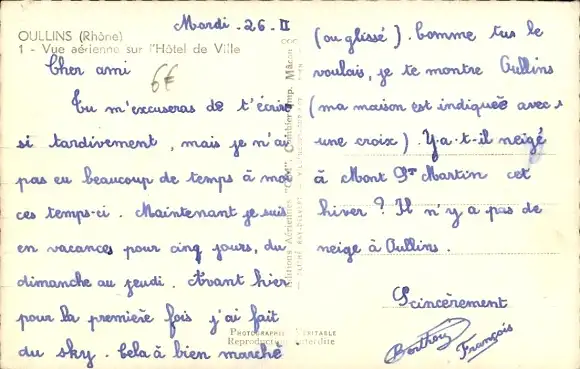 OULLINS (Rhône)
1 - Vue aérienne sur l'Hôtel de Ville
Mardi . 26 . II
Cher ami
6€
Tu m'excuseras de t'écrire
si tardivement, mais je n'ai
pas eu beaucoup de temps à moi
ces temps-ci. Maintenant je suis
en vacances pour cinq jours, du
dimanche au jeudi. Avant hier
pour la première fois j'ai fait
du sky. Cela à bien marché
(ou glissé). Comme tus le
voulais, je te montre Oullins
(ma maison est indiquée avec
une croix). Y-a-t-il neigé
à Mont St Martin cet
hiver ? Il n'y a pas de
neige à Oullins.
Scincèrement
Berthou François
Editions Aériennes "CIM" Combier Imp. Mâcon
PHOTOGRAPHIE VÉRITABLE
Reproduction interdite